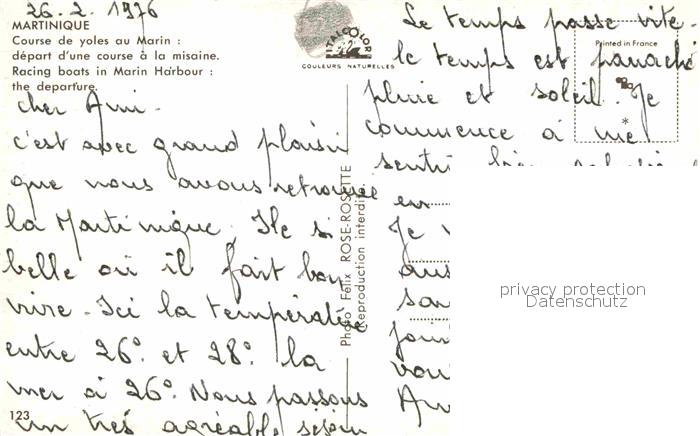 26.2.1976
MARTINIQUE
Course de yoles au Marin :
départ d'une course à la misaine.
Racing boats in Marin Harbour :
the departure.
cher Ami -
c'est avec grand plaisir
que nous avons retrouvé
la Martinique, Ile si
belle où il fait bon
vivre - Ici la température
entre 26° et 28° la
mer à 26°. Nous passons
un très agréable séjour
123
ITALCOLOR
COULEURS NATURELLES
Photo Félix ROSE-ROSETTE
(Reproduction interdite)
Printed in France
*
Le temps passe vite -
le temps est panaché
pluie et soleil. Je
commence à me
sentir
en
Je
privacy protection
Datenschutz